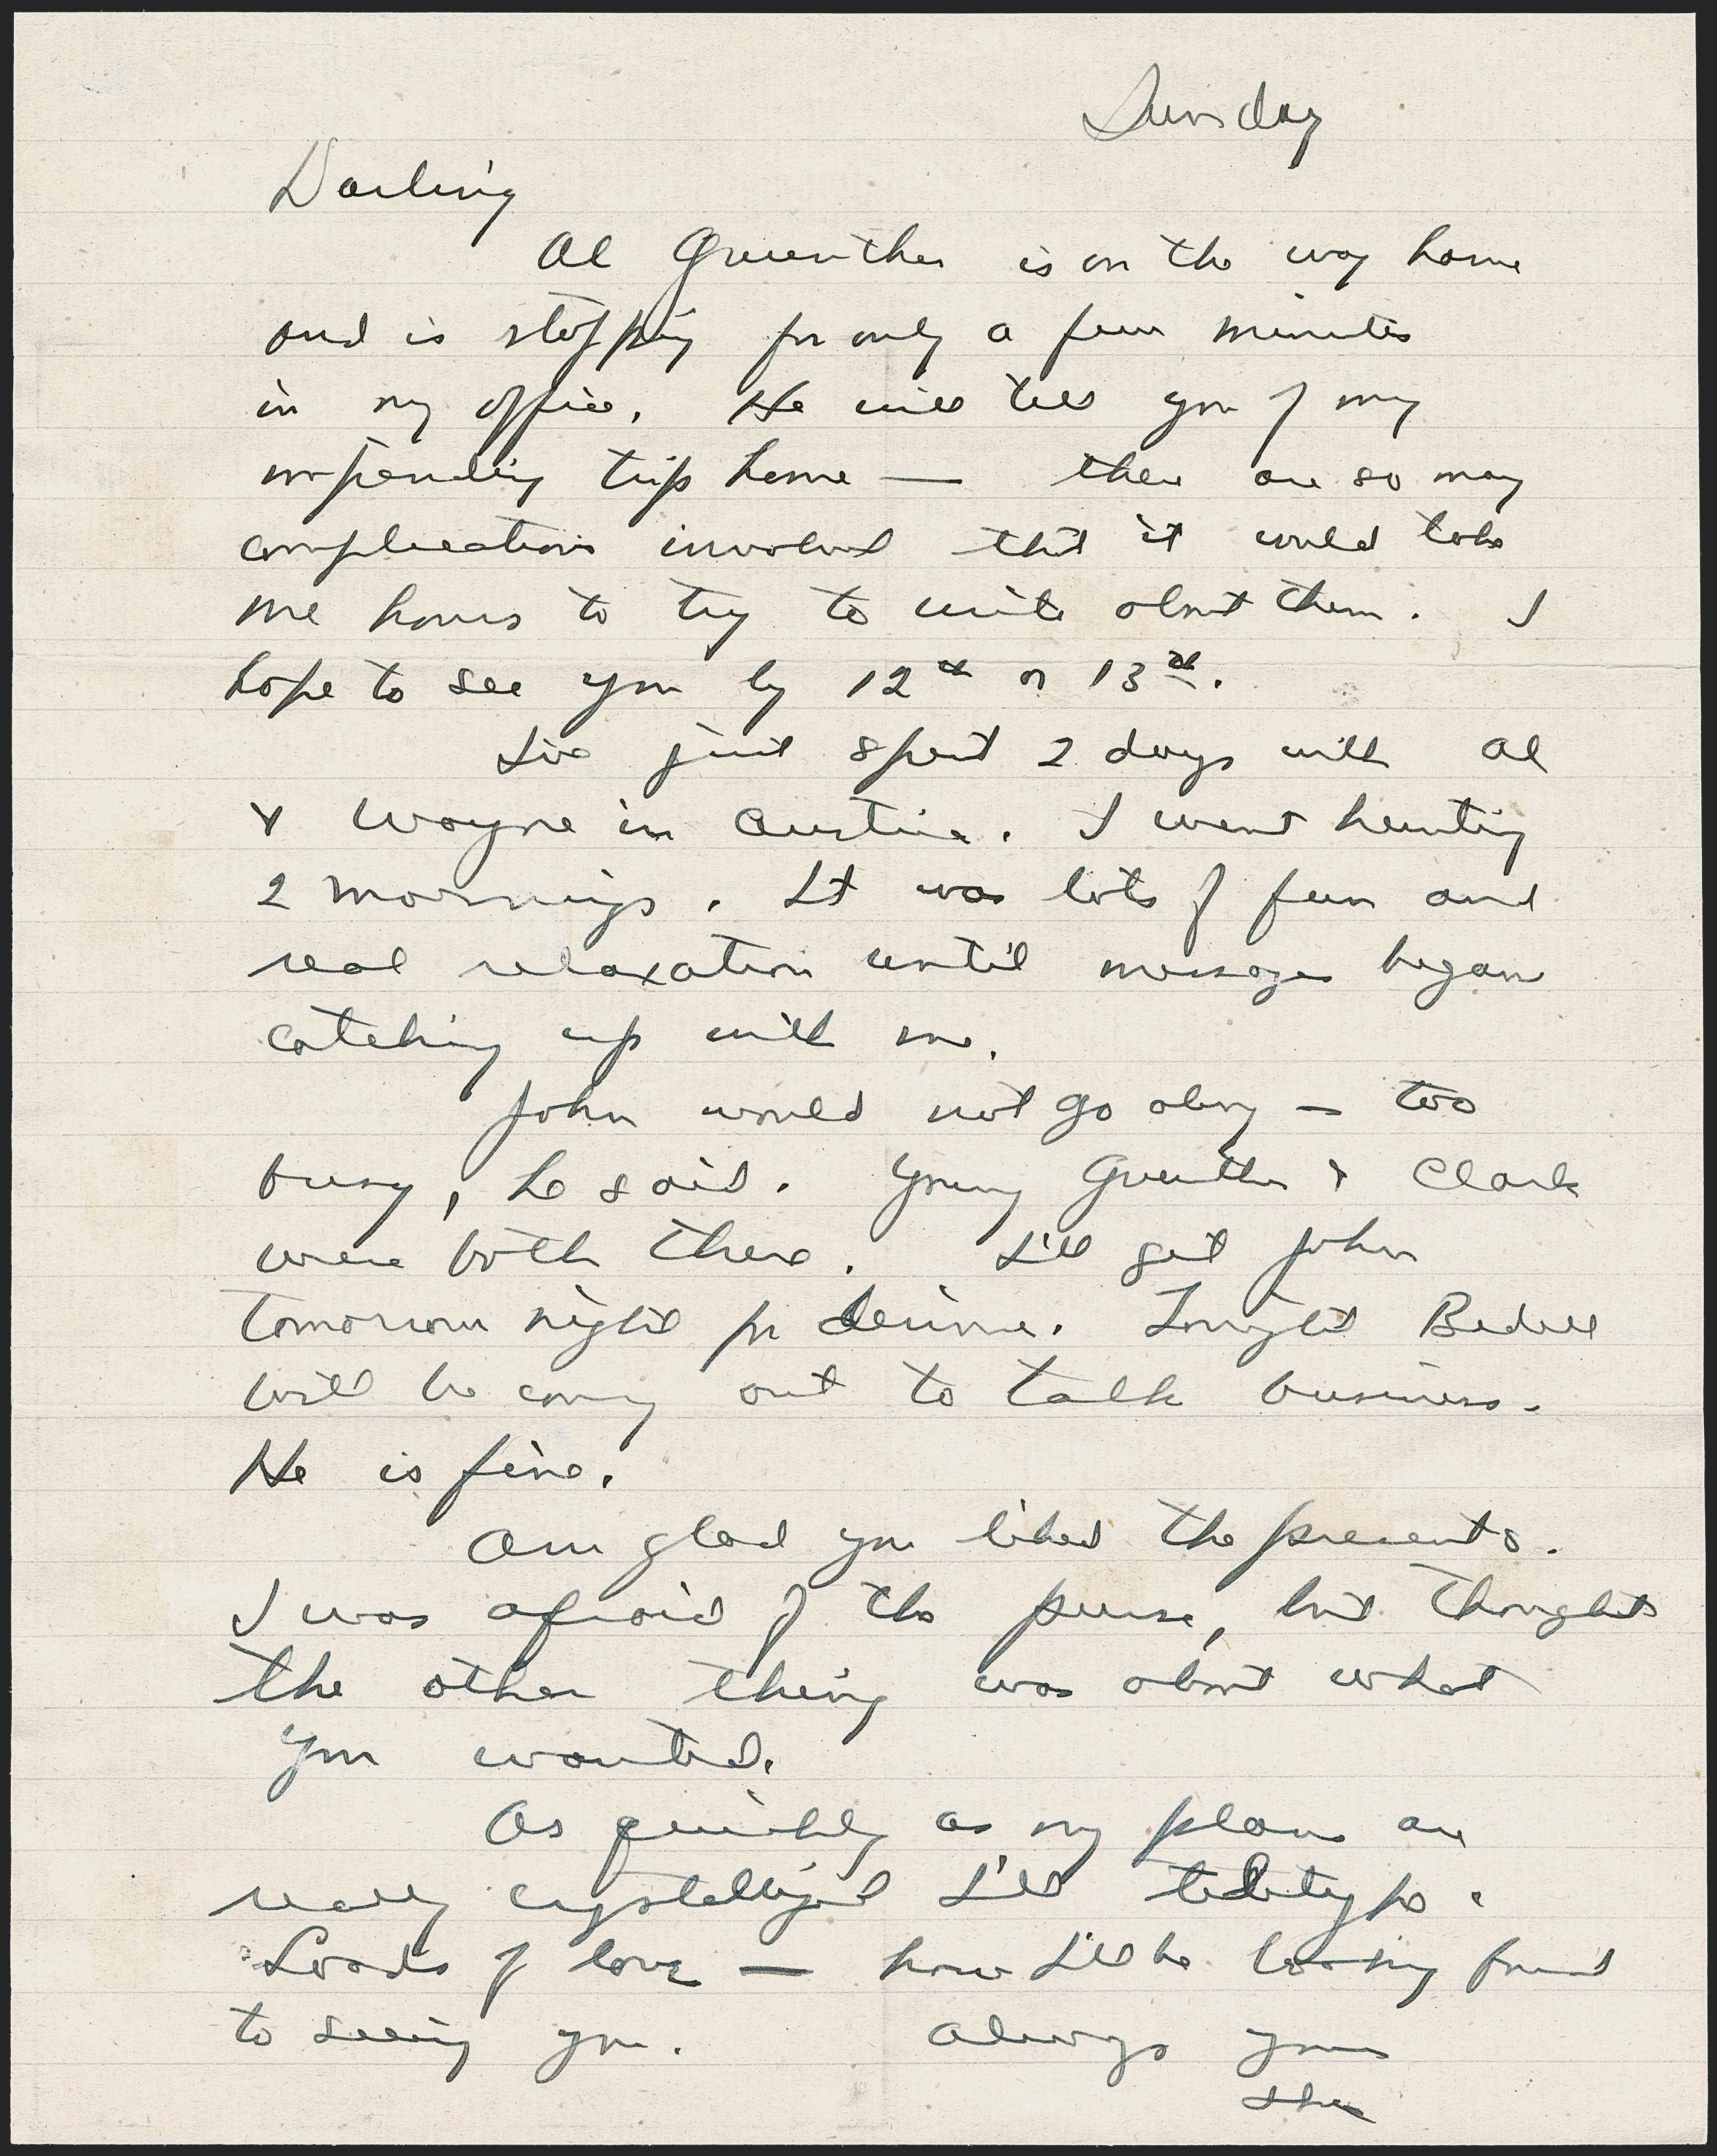 Sunday
Darling
Al Gruenther is on the way home
and is stopping for only a few minutes
in my office. He will tell you of my
impending trip home — there are so many
complications involved that it would take
me hours to try to write about them. I
hope to see you by 12th or 13th.
I've just spent 2 days with Al
& Wayne in Austria. I went hunting
2 mornings. It was lots of fun and
real relaxation until messages began
catching up with me.
John would not go along — too
busy, he said. Young Gruenther & Clark
were both there. I'll get John
tomorrow night for dinner. Tonight Bedell
will be coming out to talk business.
He is fine.
Am glad you liked the presents.
I was afraid of the purse, but thought
the other thing was about what
you wanted.
As quickly as my plans are
really crystallized I'll teletype.
Loads of love — how I'll be looking forward
to seeing you. Always your
Ike